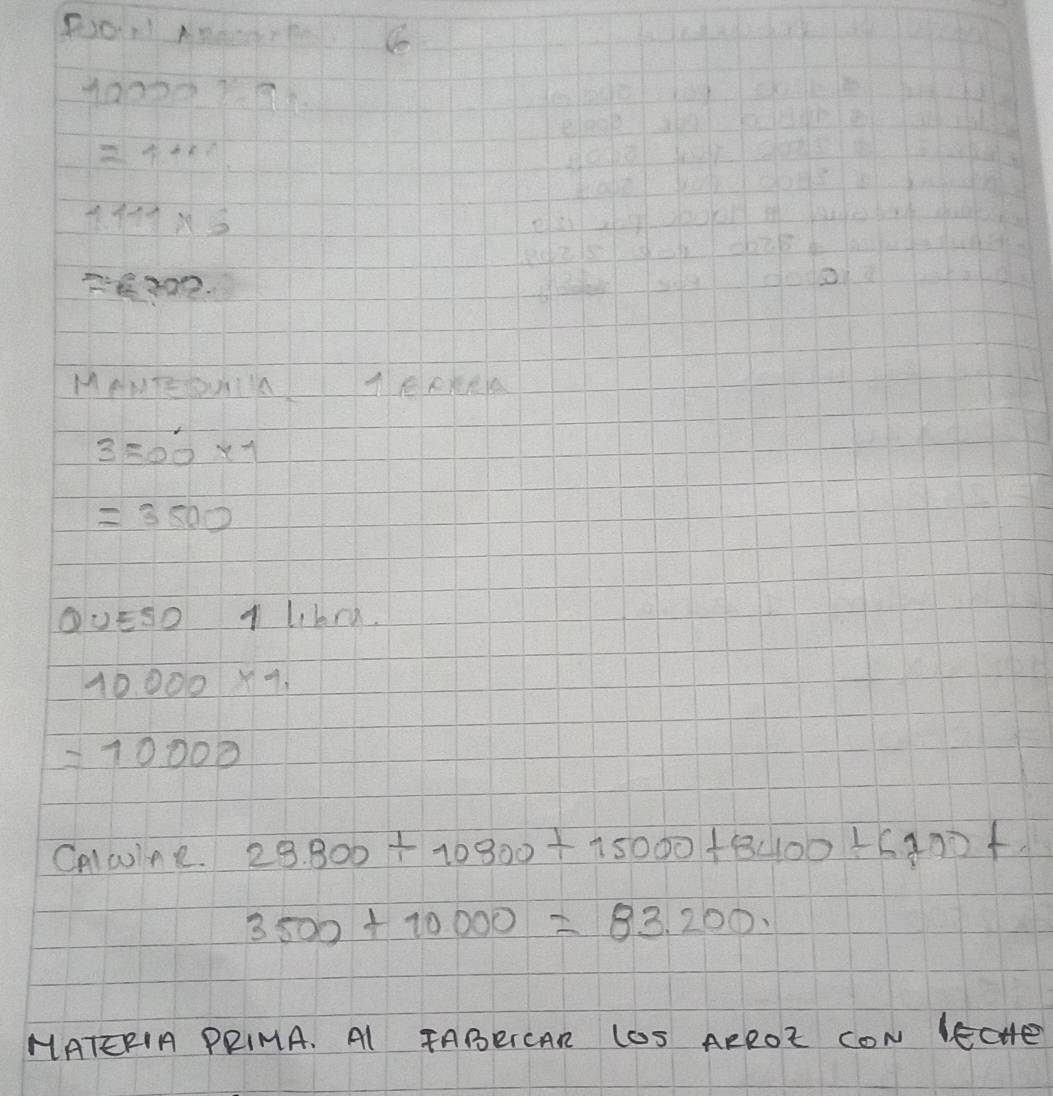 6
10000 ÷ 9
= 1111
1.111 x 6
= 6700.
MANTEQUILLA 1
3500 x 1
= 3500
QUESO 1 libra.
10.000 x 1.
= 10000
28.800 + 10800 + 15000 + 8400 + 6700 +
3500 + 10.000 = 83.200.
MATERIA PRIMA. Al FABERICAR los ARROZ CON lECHE